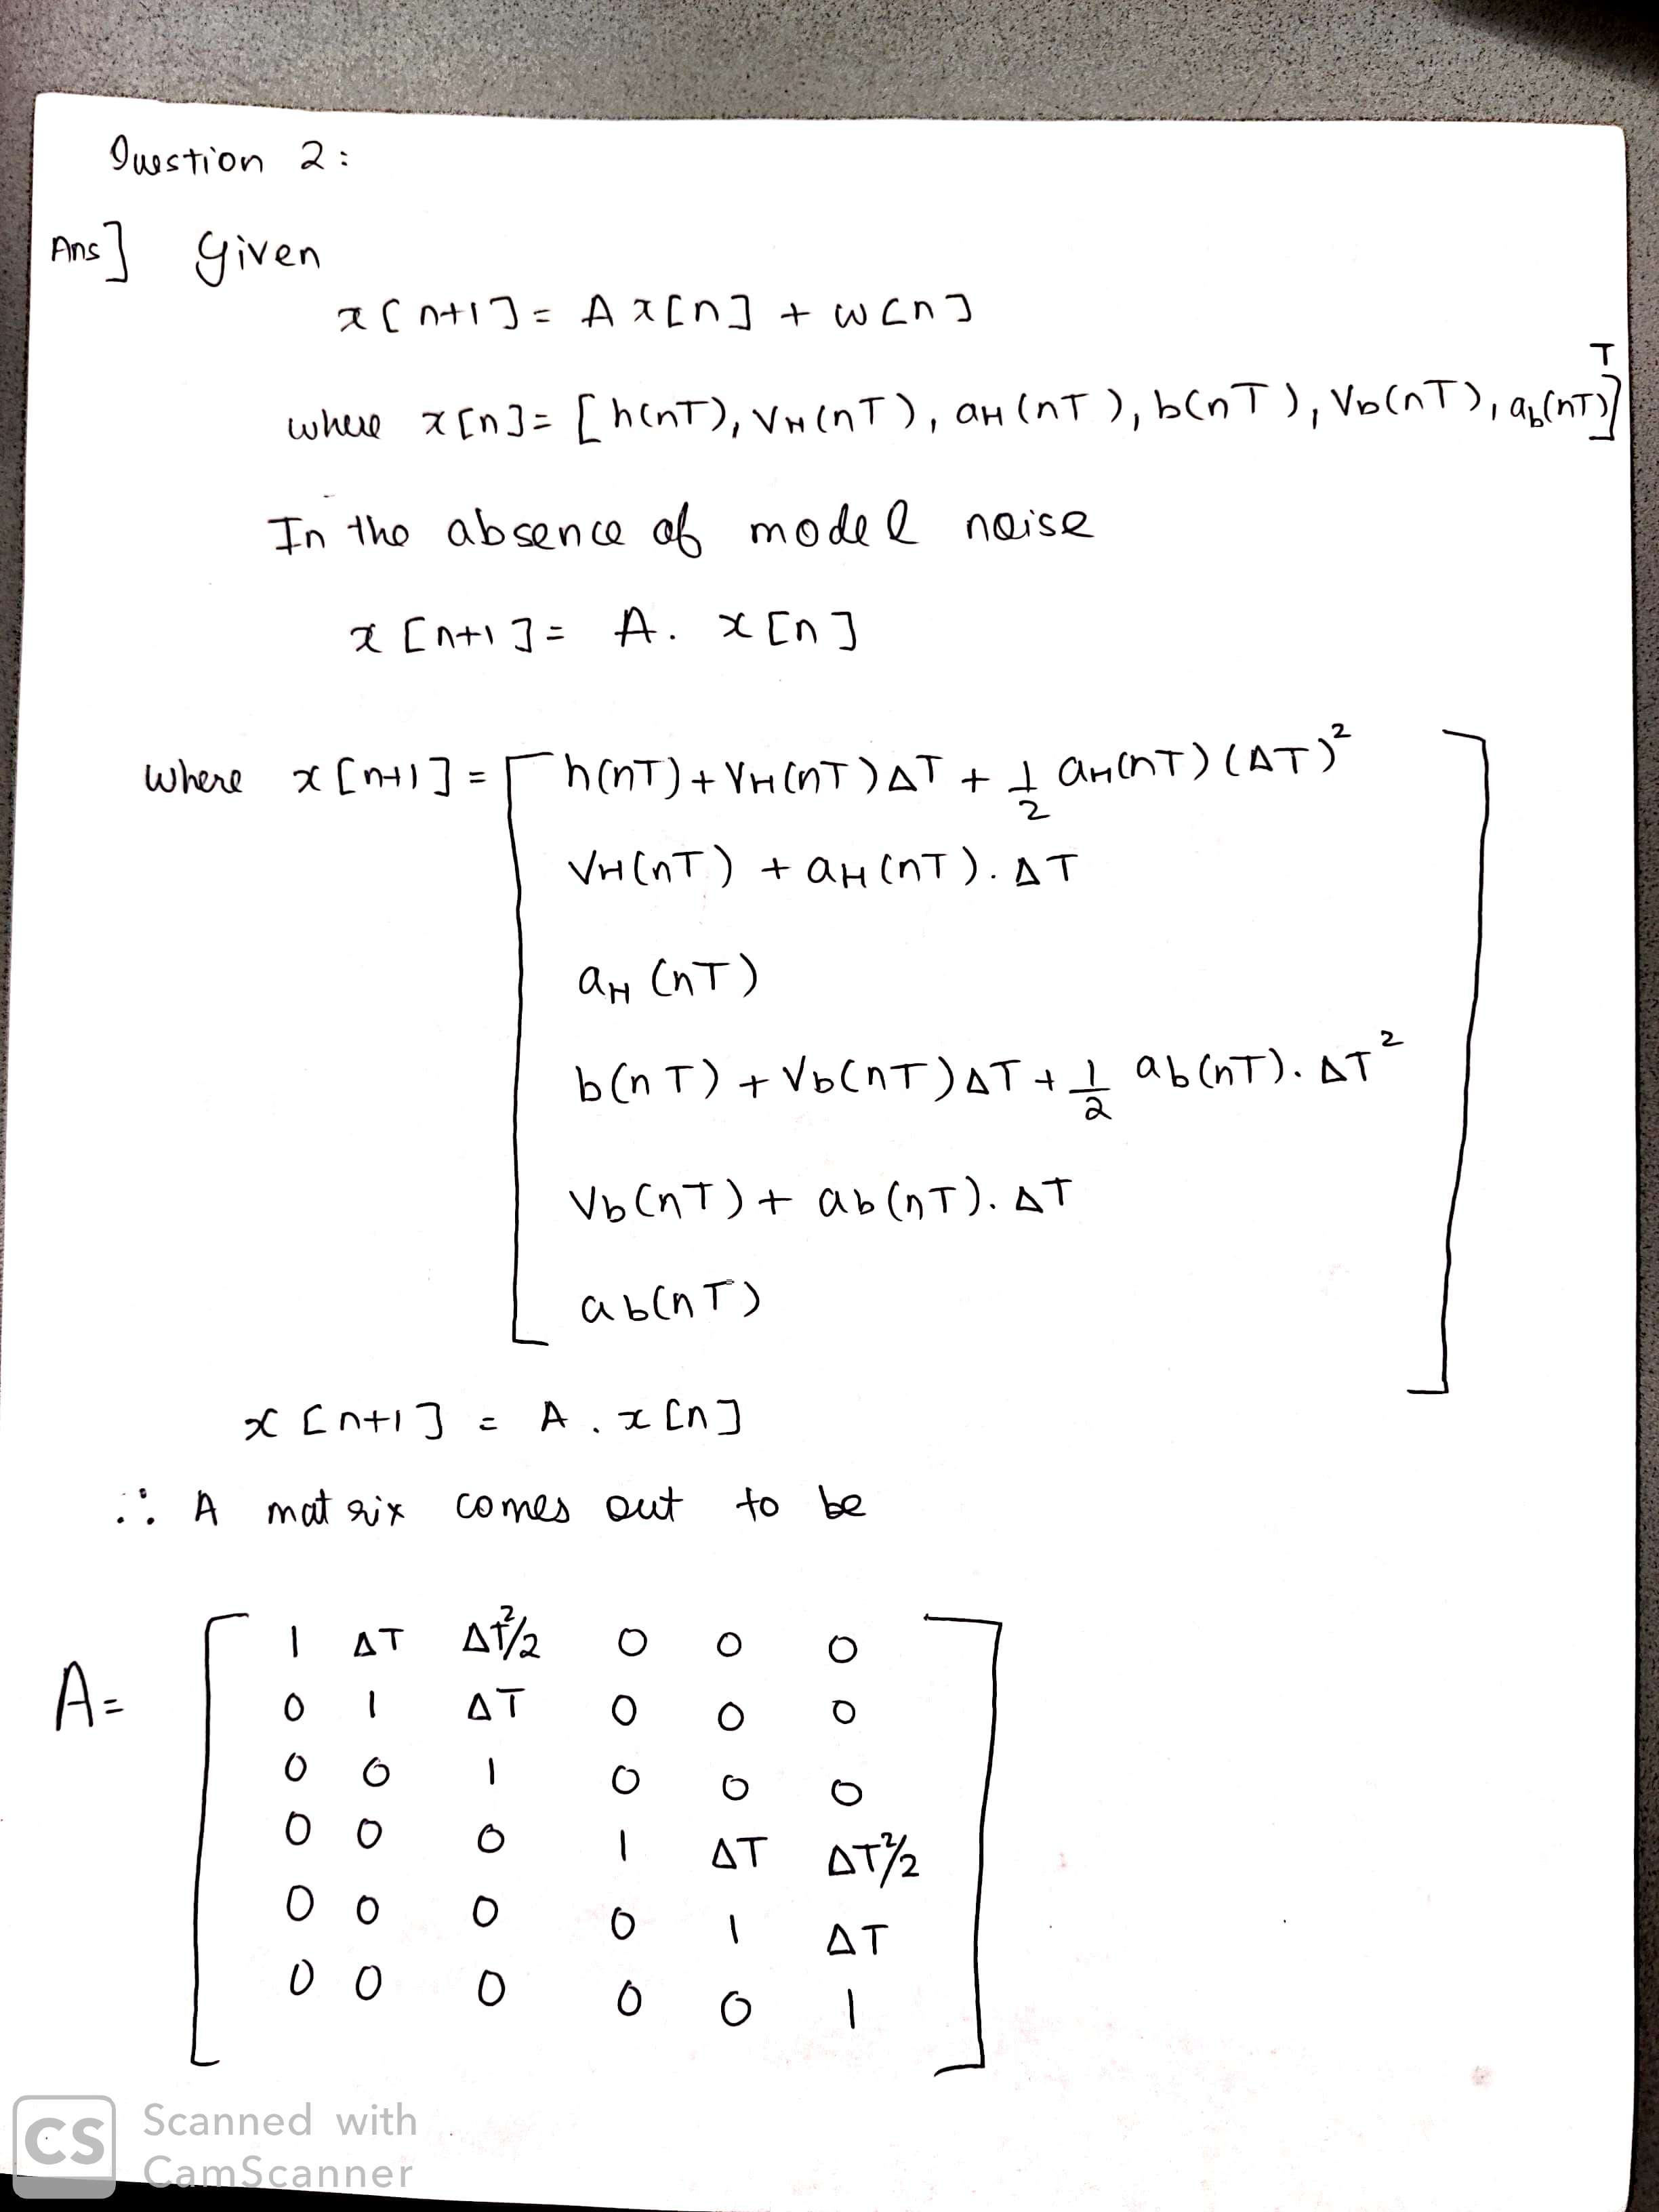 Question 2:
Ans] Given
x[n+1] = A x[n] + w[n]
where x[n] = [h(nT), VH(nT), aH(nT), b(nT), Vb(nT), ab(nT)]^T
In the absence of model noise
x[n+1] = A. x[n]
where x[n+1] = [ h(nT) + VH(nT)ΔT + 1/2 aH(nT)(ΔT)²
VH(nT) + aH(nT). ΔT
aH(nT)
b(nT) + Vb(nT)ΔT + 1/2 ab(nT). ΔT²
Vb(nT) + ab(nT). ΔT
ab(nT) ]
x[n+1] = A . x[n]
∴ A matrix comes out to be
A= [ 1 ΔT ΔT²/2 0 0 0
0 1 ΔT 0 0 0
0 0 1 0 0 0
0 0 0 1 ΔT ΔT²/2
0 0 0 0 1 ΔT
0 0 0 0 0 1 ]
CS Scanned with
CamScanner